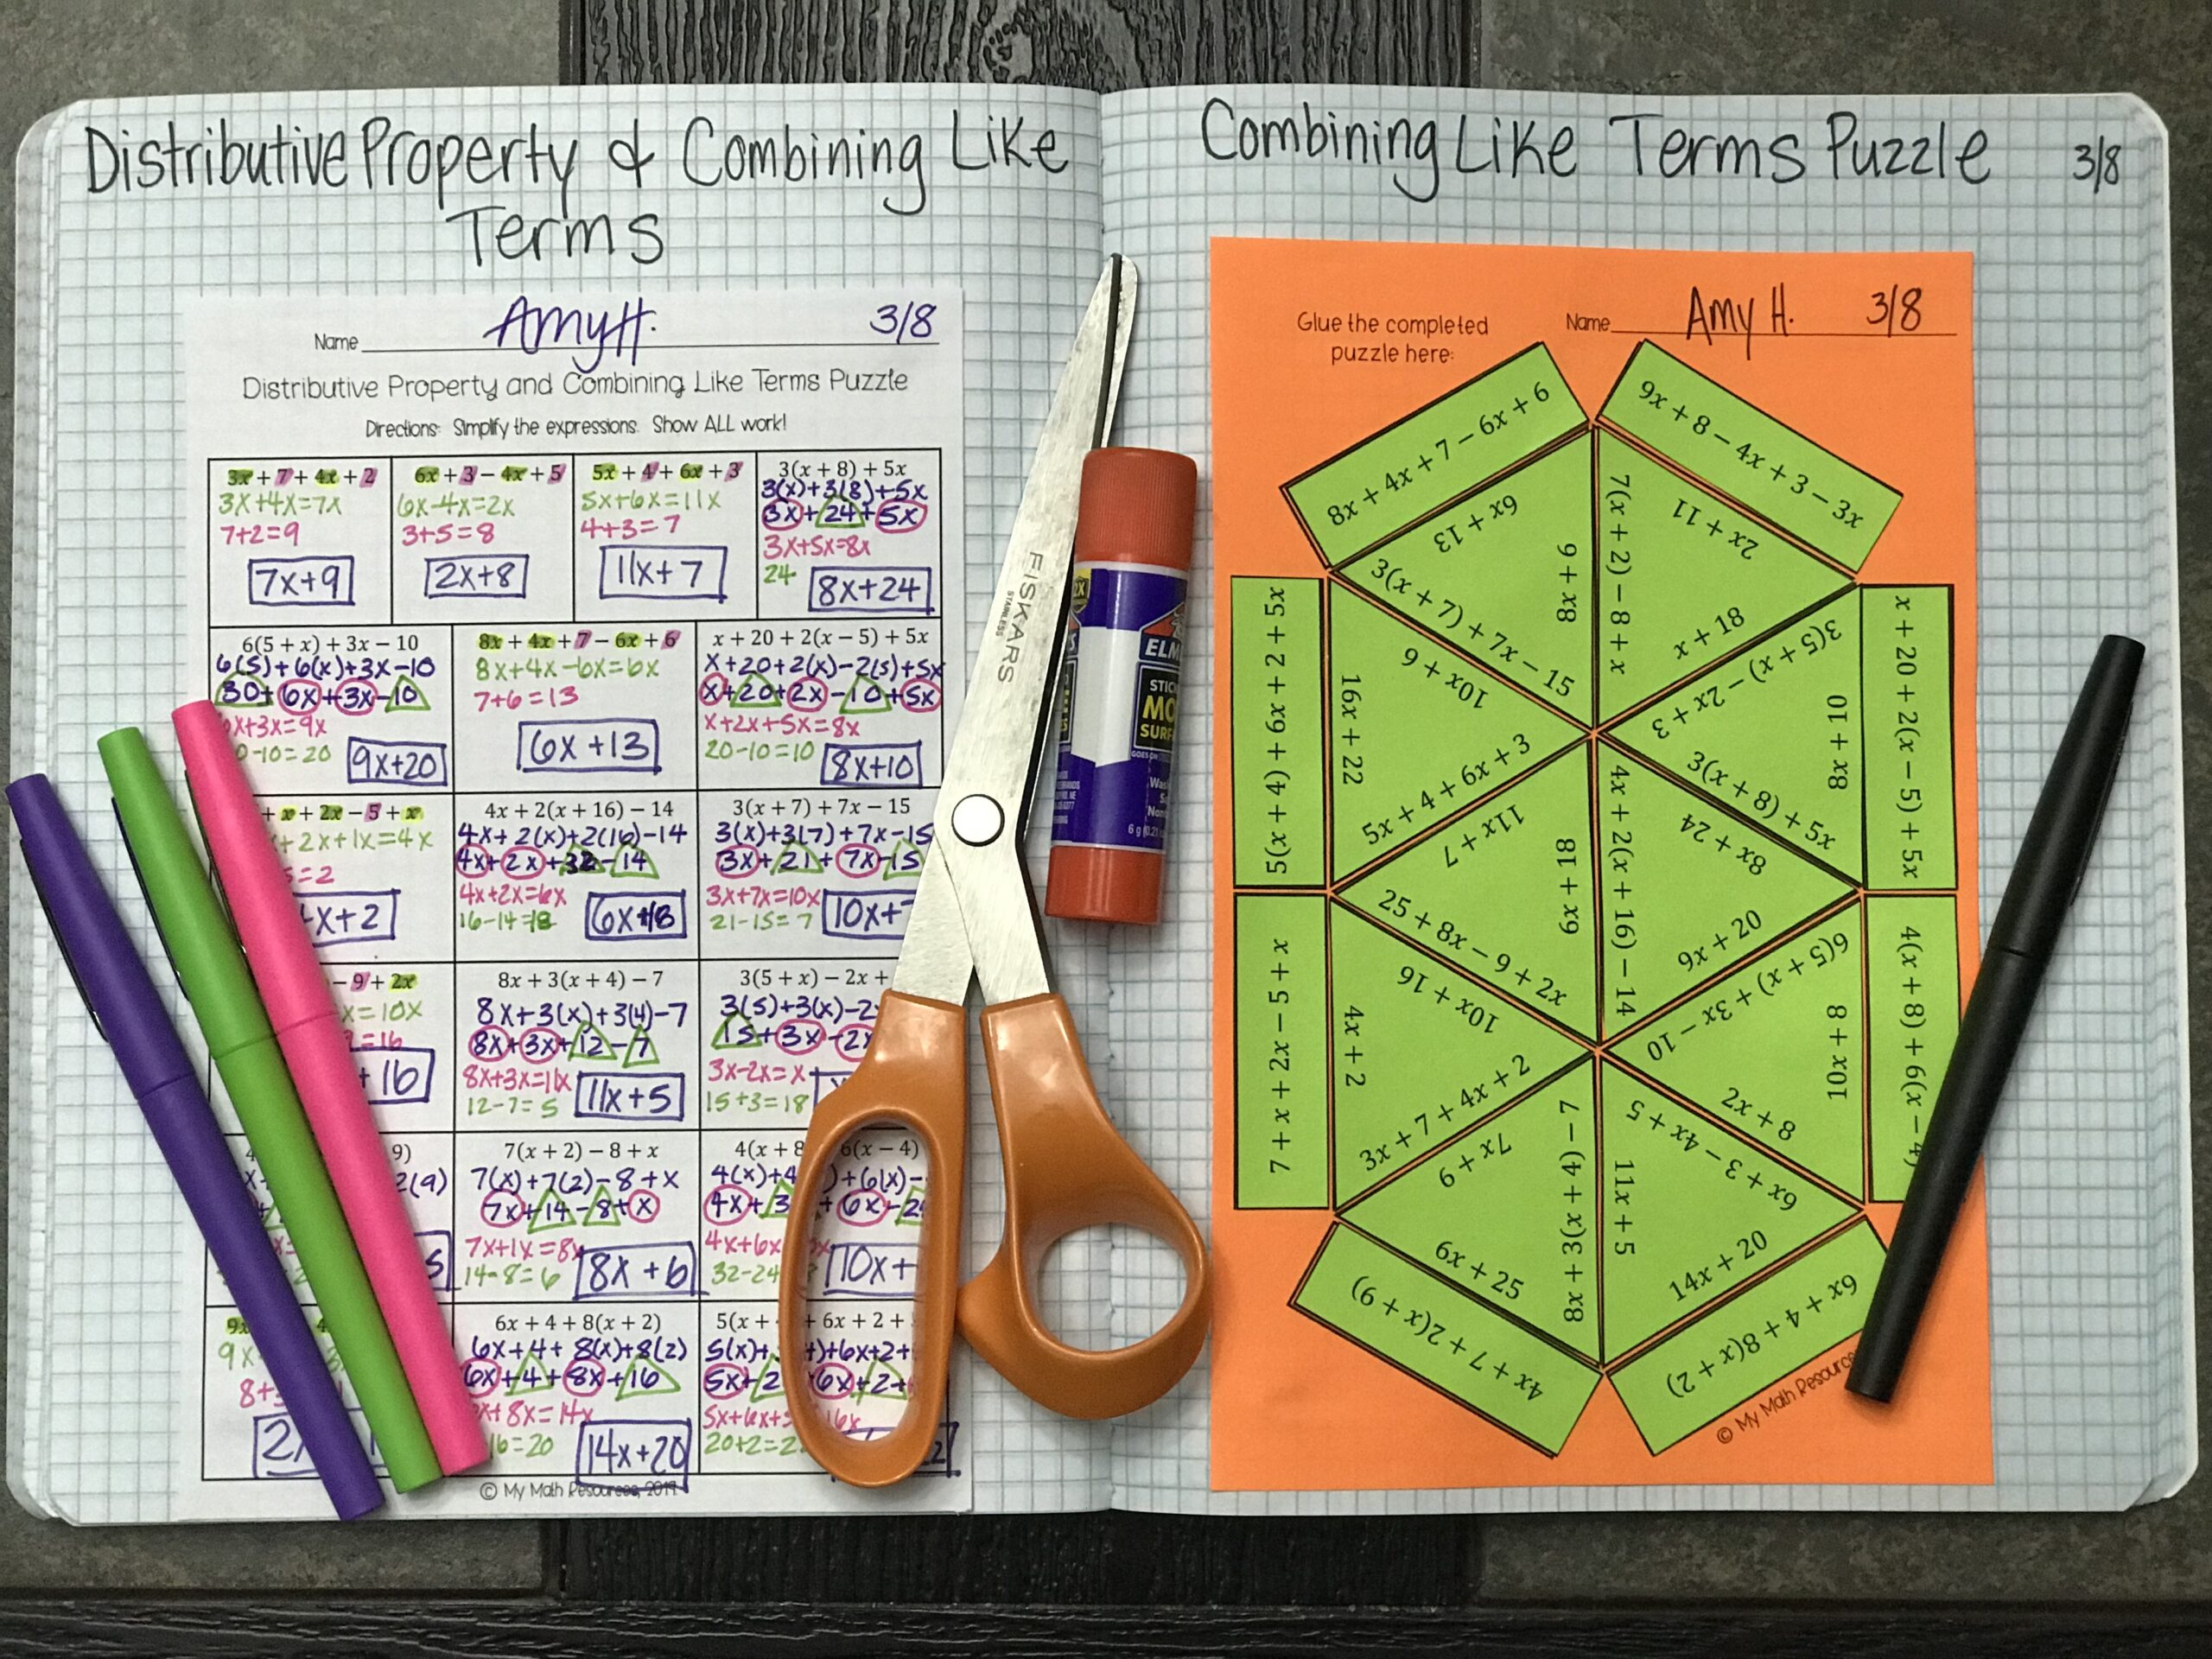 Distributive Property & Combining Like
Terms
Name Amy H. 3/8
Distributive Property and Combining Like Terms Puzzle
Directions: Simplify the expressions. Show ALL work!
3x + 7 + 4x + 2
3x+4x=7x
7+2=9
7x+9
6x + 3 − 4x + 5
6x-4x=2x
3+5=8
2x+8
5x + 4 + 6x + 3
5x+6x=11x
4+3=7
11x+7
3(x + 8) + 5x
3(x)+3(8)+5x
3x+24+5x
3x+5x=8x
24
8x+24
6(5 + x) + 3x − 10
6(5)+6(x)+3x-10
30+6x+3x-10
6x+3x=9x
0-10=20
9x+20
8x + 4x + 7 − 6x + 6
8x+4x-6x=6x
7+6=13
6x+13
x + 20 + 2(x − 5) + 5x
x+20+2(x)-2(5)+5x
x+20+2x-10+5x
x+2x+5x=8x
20-10=10
8x+10
+ x + 2x − 5 + x
+2x+1x=4x
5=2
x+2
4x + 2(x + 16) − 14
4x+2(x)+2(16)-14
4x+2x+32-14
4x+2x=6x
16-14=18
6x+18
3(x + 7) + 7x − 15
3(x)+3(7)+7x-15
3x+21+7x-15
3x+7x=10x
21-15=7
10x+7
− 9 + 2x
x=10x
=16
+16
8x + 3(x + 4) − 7
8x+3(x)+3(4)-7
8x+3x+12-7
8x+3x=11x
12-7=5
11x+5
3(5 + x) − 2x +
3(5)+3(x)-2
15+3x-2x
3x-2x=x
15+3=18
9)
2(9)
7(x + 2) − 8 + x
7(x)+7(2)-8+x
7x+14-8+x
7x+1x=8x
14-8=6
8x+6
4(x + 8 6(x − 4)
4(x)+4 )+6(x)-
4x+3 +6x-2
4x+6x
32-24
10x+
9x 4
9x
8+
2
6x + 4 + 8(x + 2)
6x+4+8(x)+8(2)
6x+4+8x+16
x+8x=14x
16=20
14x+20
5(x + + 6x + 2 +
5(x)+ )+6x+2+
5x+2 6x+2+
5x+6x+5 16x
20+2=2
2
© My Math Resources, 2019
FISKARS
STAINLESS
ELM
STIC
MO
SURF
Combining Like Terms Puzzle 3/8
Glue the completed
puzzle here:
Name Amy H. 3/8
8x + 4x + 7 − 6x + 6
9x + 8 − 4x + 3 − 3x
6x + 13
8x + 6
3(x + 7) + 7x − 15
7(x + 2) − 8 + x
2x + 11
x + 18
5(x + 4) + 6x + 2 + 5x
16x + 22
10x + 6
5x + 4 + 6x + 3
3(5 + x) − 2x + 3
8x + 10
3(x + 8) + 5x
x + 20 + 2(x − 5) + 5x
11x + 7
6x + 18
25 + 8x − 9 + 2x
4x + 2(x + 16) − 14
8x + 24
9x + 20
7 + x + 2x − 5 + x
4x + 2
10x + 16
3x + 7 + 4x + 2
6(5 + x) + 3x − 10
10x + 8
2x + 8
4(x + 8) + 6(x − 4)
7x + 9
8x + 3(x + 4) − 7
6x + 25
11x + 5
6x + 3 − 4x + 5
14x + 20
4x + 7 + 2(x + 9)
6x + 4 + 8(x + 2)
© My Math Resource